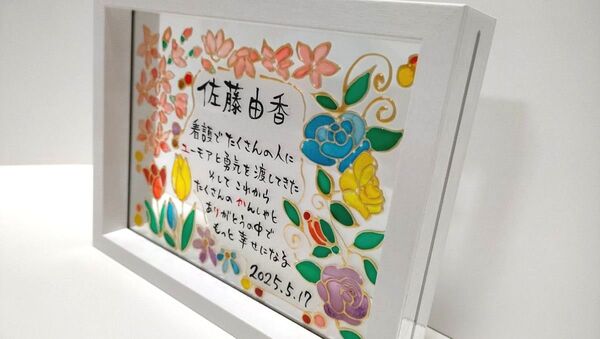 佐藤由香
看護でたくさんの人に
ユーモアと勇気を渡してきた
そしてこれから
たくさんのかんしゃと
ありがとうの中で
もっと幸せになる
2025.5.17